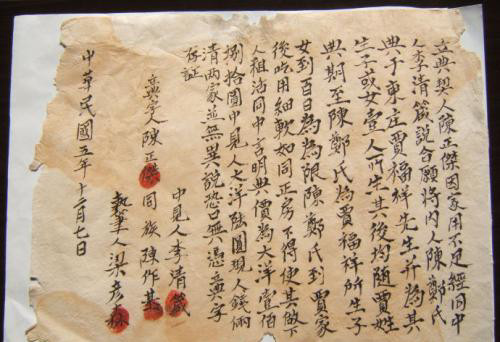 立典契人陳正傑因家用不足經同中
人李清箴說合願將內人陳鄭氏
典于東庄賈福祥先生并為其
生子或女壹人所生其後均隨賈姓
典期至陳鄭氏為賈福祥所生子
女到百日為為限陳鄭氏到賈家
後吃用細軟如同正房不得使其做下
人租沾同中言明典價為大洋壹佰
捌拾圓中見人之洋陸圓現人錢倆
清兩家並無異說恐口無憑典字
存証
立典字人陳正傑
中見人李清箴
同族陳作基
執筆人梁彥森
中華民國五年十二月七日